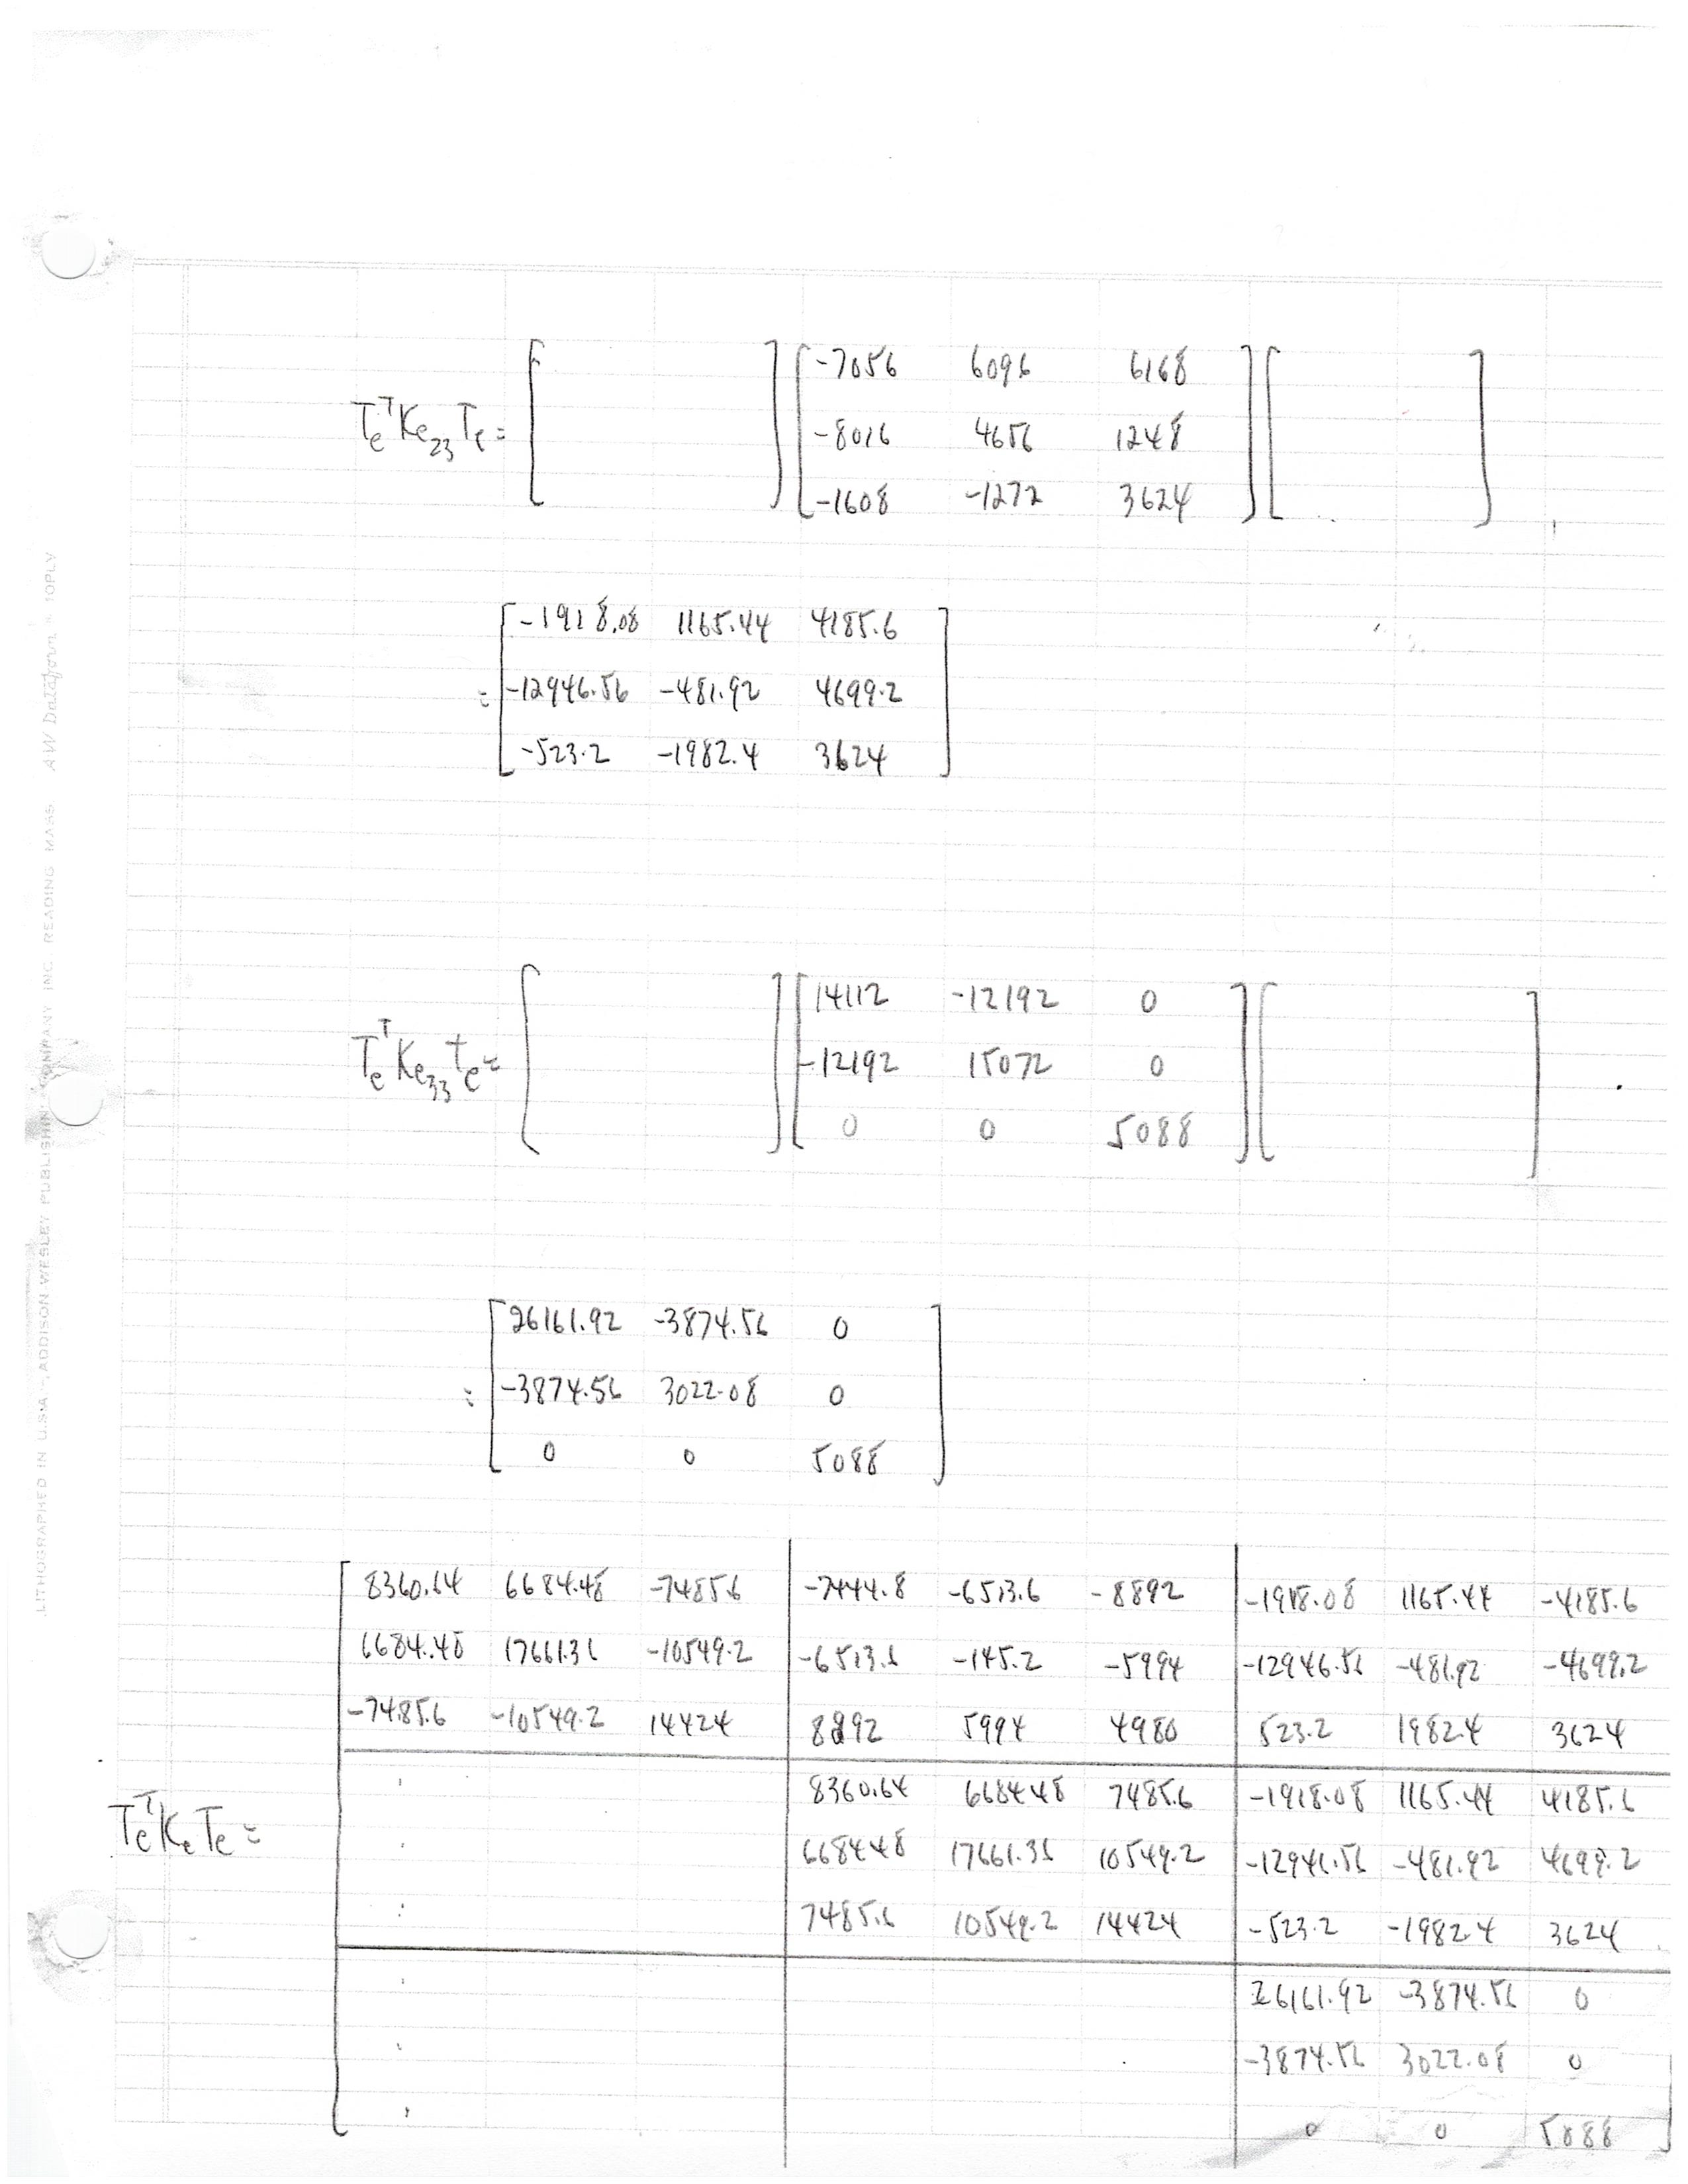 TeᵀKe₂₃Te = [ ] [ -7056 6096 6168
-8016 4656 1248
-1608 -1272 3624 ] [ ]
= [ -1918.08 1165.44 4185.6
-12946.56 -481.92 4699.2
-523.2 -1982.4 3624 ]
TeᵀKe₃₃te = [ ] [ 14112 -12192 0
-12192 15072 0
0 0 5088 ] [ ]
= [ 26161.92 -3874.56 0
-3874.56 3022.08 0
0 0 5088 ]
TeᵀKeTe =
[ 8360.64 6684.48 -7485.6 | -7444.8 -6513.6 -8892 | -1918.08 1165.44 -4185.6
6684.48 17661.36 -10549.2 | -6513.6 -145.2 -5994 | -12946.56 -481.92 -4699.2
-7485.6 -10549.2 14424 | 8892 5994 4980 | 523.2 1982.4 3624
8360.64 6684.48 7485.6 | -1918.08 1165.44 4185.6
6684.48 17661.36 10549.2 | -12946.56 -481.92 4699.2
7485.6 10549.2 14424 | -523.2 -1982.4 3624
26161.92 -3874.56 0
-3874.56 3022.08 0
0 0 5088 ]
LITHOGRAPHED IN U.S.A. ADDISON WESLEY PUBLISHING COMPANY INC. READING MASS. AW Dataform 10PLY